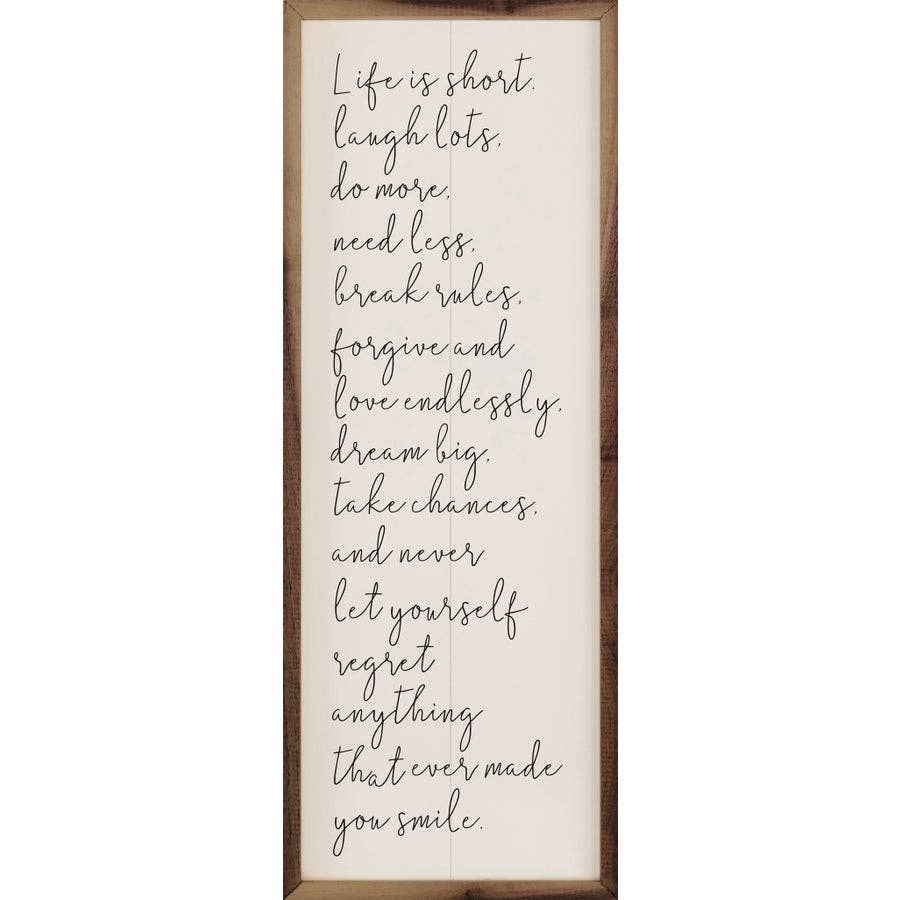 Life is short.
laugh lots,
do more,
need less,
break rules,
forgive and
love endlessly,
dream big,
take chances,
and never
let yourself
regret
anything
that ever made
you smile.